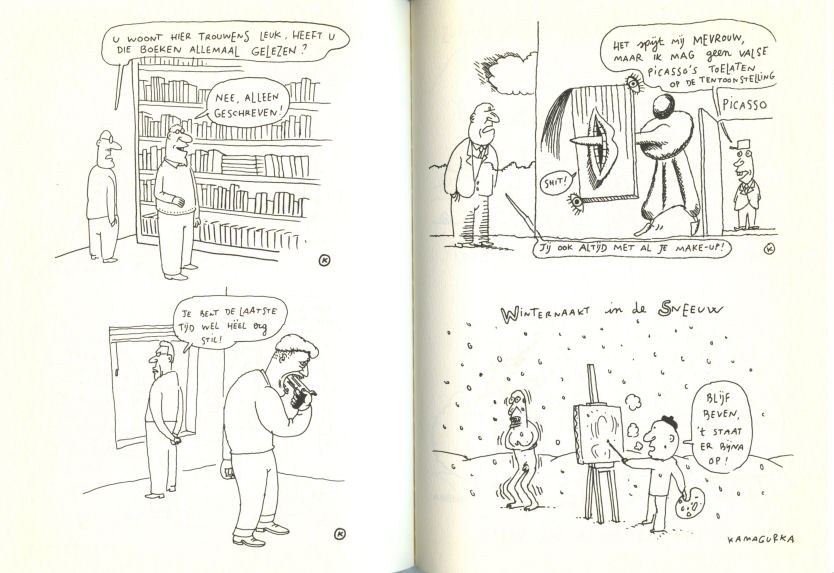 U WOONT HIER TROUWENS LEUK, HEEFT U
DIE BOEKEN ALLEMAAL GELEZEN?
NEE, ALLEEN
GESCHREVEN!
K
JE BENT DE LAATSTE
TIJD WEL HÉÉL ERG
STIL!
K
HET SPIJT MIJ MEVROUW,
MAAR IK MAG GEEN VALSE
PICASSO'S TOELATEN
OP DE TENTOONSTELLING
PICASSO
SHIT!
JIJ OOK ALTIJD MET AL JE MAKE-UP!
K
WINTERNAAKT in de SNEEUW
BLIJF
BEVEN,
'T STAAT
ER BIJNA
OP!
KAMAGURKA